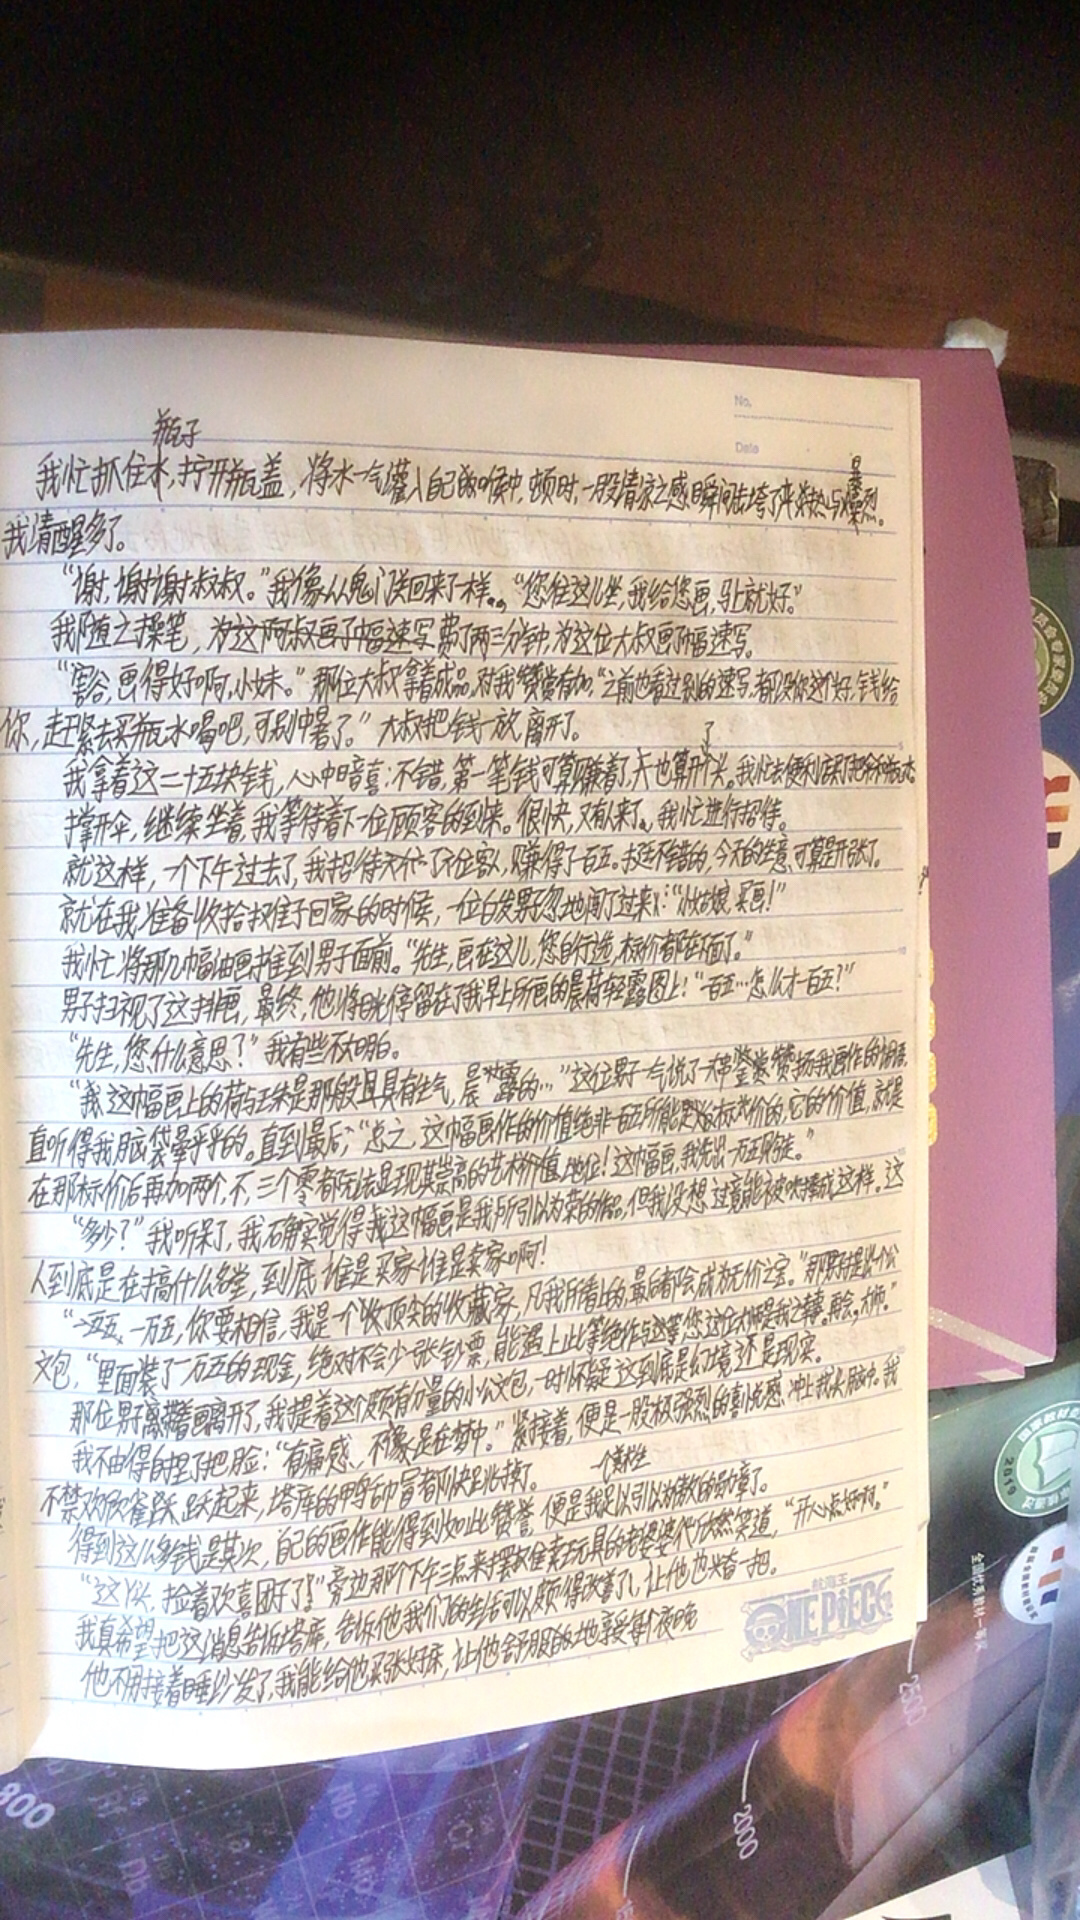 No.
Date
瓶子
我忙抓住水,拧开瓶盖,将水一气灌入自己的喉中,顿时,一股清凉之感瞬间击垮了炎热与
我清醒多了。
“谢,谢谢叔叔。”我像从鬼门关回来了一样。“您往这儿坐,我给您画,马上就好。”
我随之操笔,费了两三分钟,为这位大叔画了幅速写。
画得好啊,小妹。”那位大叔拿着成品,对我赞赏有加,“之前也看过别的速写,都没你这个好,钱给
你,赶紧去买瓶水喝吧,可别中暑了。”大叔把钱一放,离开了。
了
我拿着这二十五块钱,心中暗喜:不错,第一笔钱可算赚着了,也算开了头。我忙去便利店
撑开伞,继续坐着,我等待着下一位顾客的到来。很快,又有人来了,我忙进行招待。
就这样,一个下午过去了,我招待了位客人,赚得了一百五。挺不错的,今天的生意可算是开张了。
就在我准备收拾摊子回家的时候,一位白发男子忽地闯了过来:“小姑娘,买画!”
我忙将那几幅油画推到男子面前。“先生,画在这儿,您自行选,标价都在下面了。”
男子扫视了这排画,最终,他将目光停留在了我早上所画的晨荷轻露图上!“一百五…怎么才一百五?”
“先生,您什么意思?”我有些不太明白。
这幅画上的荷与珠是那般具有生气,晨露的…”这位男子一气说了一大串鉴赏赞扬我画作的词语,
直听得我脑袋晕乎乎的。直到最后,“总之,这幅画作的价值绝非一百五所能标价的,它的价值,就是
在那标价后再加两个,不,三个零都无法显现其崇高的艺术价值、地位!这幅画,我先出一万五
“多少?”我听呆了,我确实觉得这幅画是我所引以为荣的作品,但我没想过竟能被吹捧成这样。这
人到底是在搞什么名堂,到底谁是买家谁是卖家啊!
一万五,你要相信,我是一个顶尖的收藏家,凡我所看上的,最后都会成为无价之宝。”那男子提出个公
文包,“里面装了一万五的现金,绝对不会少一张钞票,能遇上此等绝作与您这位大师是我之幸,再会,大师。”
那位男子携着画离开了,我提着这个颇有分量的小公文包,一时怀疑这到底是幻境还是现实。
我不由得自捏了把脸:“有痛感,不像是在梦中。”紧接着,便是一股极强烈的喜悦感,冲上我头脑中。我
一个美术生
不禁欢欣雀跃,跃起来,塔库的鸭舌帽冒都快跳掉了。
得到这么多钱是其次,自己的画作能得到如此赞誉,便是我足以引以为傲的勋章了。
捡着欢喜团子了!”旁边那个下午三点来摆摊卖玩具的老婆婆忻然笑道,“开心点好啊。”
我真希望把这消息告诉塔库,告诉他我们的生活可以颇得改善了,让他也兴奋一把。
他不用接着睡沙发了,我能给他买张好床,让他舒服的地享受每个夜晚
航海王
ONE PIECE
800
2000
2500